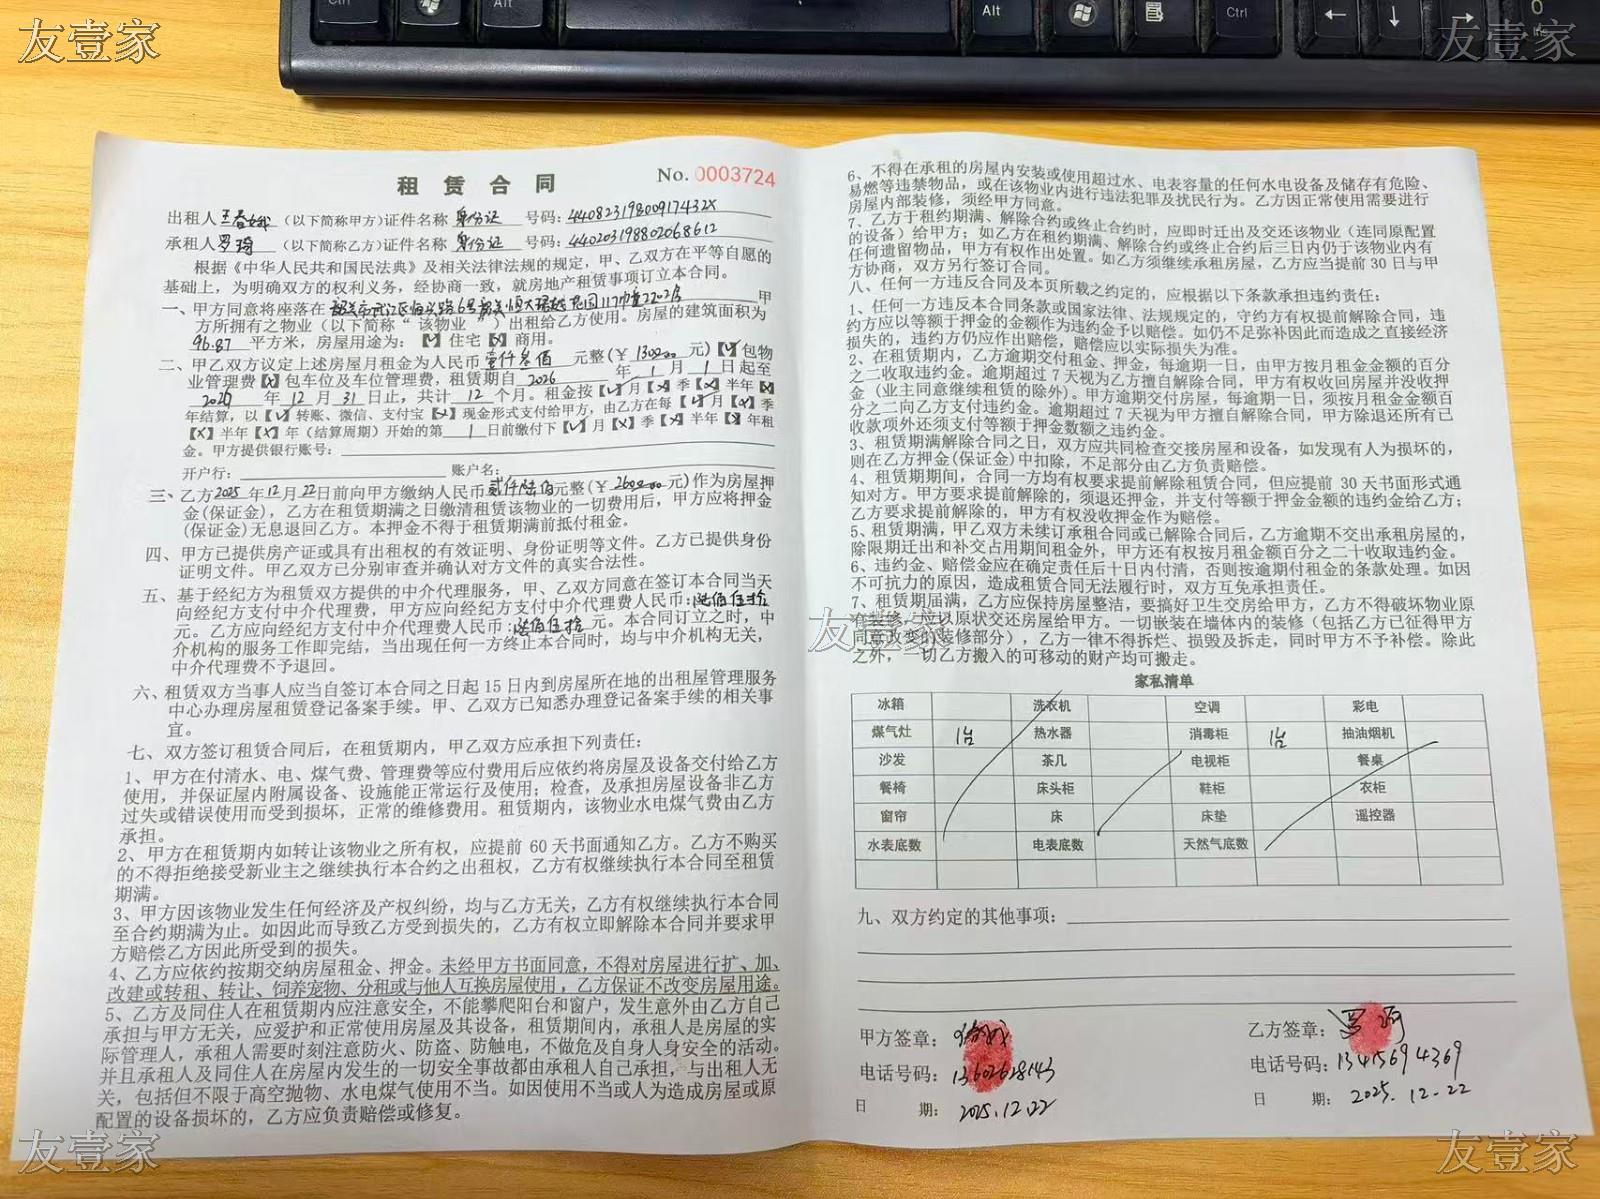 友壹家
友壹家
Ctrl
Alt
Alt
Ctrl
租赁合同
No. 0003724
出租人 王春娥 (以下简称甲方)证件名称 身份证 号码: 44082319800917432X
承租人 罗琦 (以下简称乙方)证件名称 身份证 号码: 440203198802068612
根据《中华人民共和国民法典》及相关法律法规的规定，甲、乙双方在平等自愿的
基础上，为明确双方的权利义务，经协商一致，就房地产租赁事项订立本合同。
一、甲方同意将座落在 韶关市武江区 6号韶关恒大 花园11幢2202房 甲
方所拥有之物业（以下简称“该物业”）出租给乙方使用。房屋的建筑面积为
96.87 平方米，房屋用途为：【√】住宅【X】商用。
二、甲乙双方议定上述房屋月租金为人民币 壹仟叁佰 元整(￥ 1300.00 元)【√】包物
业管理费【X】包车位及车位管理费，租赁期自 2026 年 1 月 1 日起至
2026 年 12 月 31 日止，共计 12 个月。租金按【√】月【X】季【X】半年【X】
年结算，以【√】转账、微信、支付宝【X】现金形式支付给甲方，由乙方在每【√】月【X】季
【X】半年【X】年（结算周期）开始的第 1 日前缴付下【√】月【X】季【X】半年【X】年租
金。甲方提供银行账号：
开户行： 账户名：
三、乙方2025年12月22日前向甲方缴纳人民币 贰仟陆佰 元整(￥ 2600.00 元)作为房屋押
金(保证金)，乙方在租赁期满之日缴清租赁该物业的一切费用后，甲方应将押金
(保证金)无息退回乙方。本押金不得于租赁期满前抵付租金。
四、甲方已提供房产证或具有出租权的有效证明、身份证明等文件。乙方已提供身份
证明文件。甲乙双方已分别审查并确认对方文件的真实合法性。
五、基于经纪方为租赁双方提供的中介代理服务，甲、乙双方同意在签订本合同当天
向经纪方支付中介代理费，甲方应向经纪方支付中介代理费人民币：陆佰伍拾
元。乙方应向经纪方支付中介代理费人民币：陆佰伍拾 元。本合同订立之时，中
介机构的服务工作即完结，当出现任何一方终止本合同时，均与中介机构无关，
中介代理费不予退回。
六、租赁双方当事人应当自签订本合同之日起 15 日内到房屋所在地的出租屋管理服务
中心办理房屋租赁登记备案手续。甲、乙双方已知悉办理登记备案手续的相关事
宜。
七、双方签订租赁合同后，在租赁期内，甲乙双方应承担下列责任：
1、甲方在付清水、电、煤气费、管理费等应付费用后应依约将房屋及设备交付给乙方
使用，并保证屋内附属设备、设施能正常运行及使用；检查，及承担房屋设备非乙方
过失或错误使用而受到损坏，正常的维修费用。租赁期内，该物业水电煤气费由乙方
承担。
2、甲方在租赁期内如转让该物业之所有权，应提前 60 天书面通知乙方。乙方不购买
的不得拒绝接受新业主之继续执行本合约之出租权，乙方有权继续执行本合同至租赁
期满。
3、甲方因该物业发生任何经济及产权纠纷，均与乙方无关，乙方有权继续执行本合同
至合约期满为止。如因此而导致乙方受到损失的，乙方有权立即解除本合同并要求甲
方赔偿乙方因此所受到的损失。
4、乙方应依约按期交纳房屋租金、押金。未经甲方书面同意，不得对房屋进行扩、加、
改建或转租、转让、饲养宠物、分租或与他人互换房屋使用，乙方保证不改变房屋用途。
5、乙方及同住人在租赁期内应注意安全，不能攀爬阳台和窗户，发生意外由乙方自己
承担与甲方无关，应爱护和正常使用房屋及其设备，租赁期间内，承租人是房屋的实
际管理人，承租人需要时刻注意防火、防盗、防触电，不做危及自身人身安全的活动。
并且承租人及同住人在房屋内发生的一切安全事故都由承租人自己承担，与出租人无
关，包括但不限于高空抛物、水电煤气使用不当。如因使用不当或人为造成房屋或原
配置的设备损坏的，乙方应负责赔偿或修复。
6、不得在承租的房屋内安装或使用超过水、电表容量的任何水电设备及储存有危险、
易燃等违禁物品，或在该物业内进行违法犯罪及扰民行为。乙方因正常使用需要进行
房屋内部装修，须经甲方同意。
7、乙方于租约期满、解除合约或终止合约时，应即时迁出及交还该物业（连同原配置
的设备）给甲方；如乙方在租约期满、解除合约或终止合约后三日内仍于该物业内有
任何遗留物品，甲方有权作出处置。如乙方须继续承租房屋，乙方应当提前 30 日与甲
方协商，双方另行签订合同。
八、任何一方违反合同及本页所载之约定的，应根据以下条款承担违约责任：
1、任何一方违反本合同条款或国家法律、法规规定的，守约方有权提前解除合同，违
约方应以等额于押金的金额作为违约金予以赔偿。如仍不足弥补因此而造成之直接经济
损失的，违约方仍应作出赔偿，赔偿应以实际损失为准。
2、在租赁期内，乙方逾期交付租金、押金，每逾期一日，由甲方按月租金金额的百分
之二收取违约金。逾期超过 7 天视为乙方擅自解除合同，甲方有权收回房屋并没收押
金（业主同意继续租赁的除外）。甲方逾期交付房屋，每逾期一日，须按月租金金额百
分之二向乙方支付违约金。逾期超过 7 天视为甲方擅自解除合同，甲方除退还所有已
收款项外还须支付等额于押金数额之违约金。
3、租赁期满解除合同之日，双方应共同检查交接房屋和设备，如发现有人为损坏的，
则在乙方押金(保证金)中扣除，不足部分由乙方负责赔偿。
4、租赁期期间，合同一方均有权要求提前解除租赁合同，但应提前 30 天书面形式通
知对方。甲方要求提前解除的，须退还押金，并支付等额于押金金额的违约金给乙方；
乙方要求提前解除的，甲方有权没收押金作为赔偿。
5、租赁期满，甲甲乙双方未续订承租合同或已解除合同后，乙方逾期不交出承租房屋的，
除限期迁出和补交占用期间租金外，甲方还有权按月租金额百分之二十收取违约金。
6、违约金、赔偿金应在确定责任后十日内付清，否则按逾期付租金的条款处理。如因
不可抗力的原因，造成租赁合同无法履行时，双方互免承担责任。
7、租赁期届满，乙方应保持房屋整洁，要搞好卫生交房给甲方，乙方不得破坏物业原
有装修，应以原状交还房屋给甲方。一切嵌装在墙体内的装修（包括乙方已征得甲方
同意改变的装修部分），乙方一律不得拆烂、损毁及拆走，同时甲方不予补偿。除此
之外，一切乙方搬入的可移动的财产均可搬走。
友壹家
家私清单
冰箱 洗衣机 空调 彩电
煤气灶 1台 热水器 消毒柜 1台 抽油烟机
沙发 茶几 电视柜 餐桌
餐椅 床头柜 鞋柜 衣柜
窗帘 床 床垫 遥控器
水表底数 电表底数 天然气底数
九、双方约定的其他事项：
甲方签章：
电话号码：13602628143
日 期：2025.12.22
乙方签章：罗琦
电话号码：13415694369
日 期：2025.12.22
友壹家
友壹家